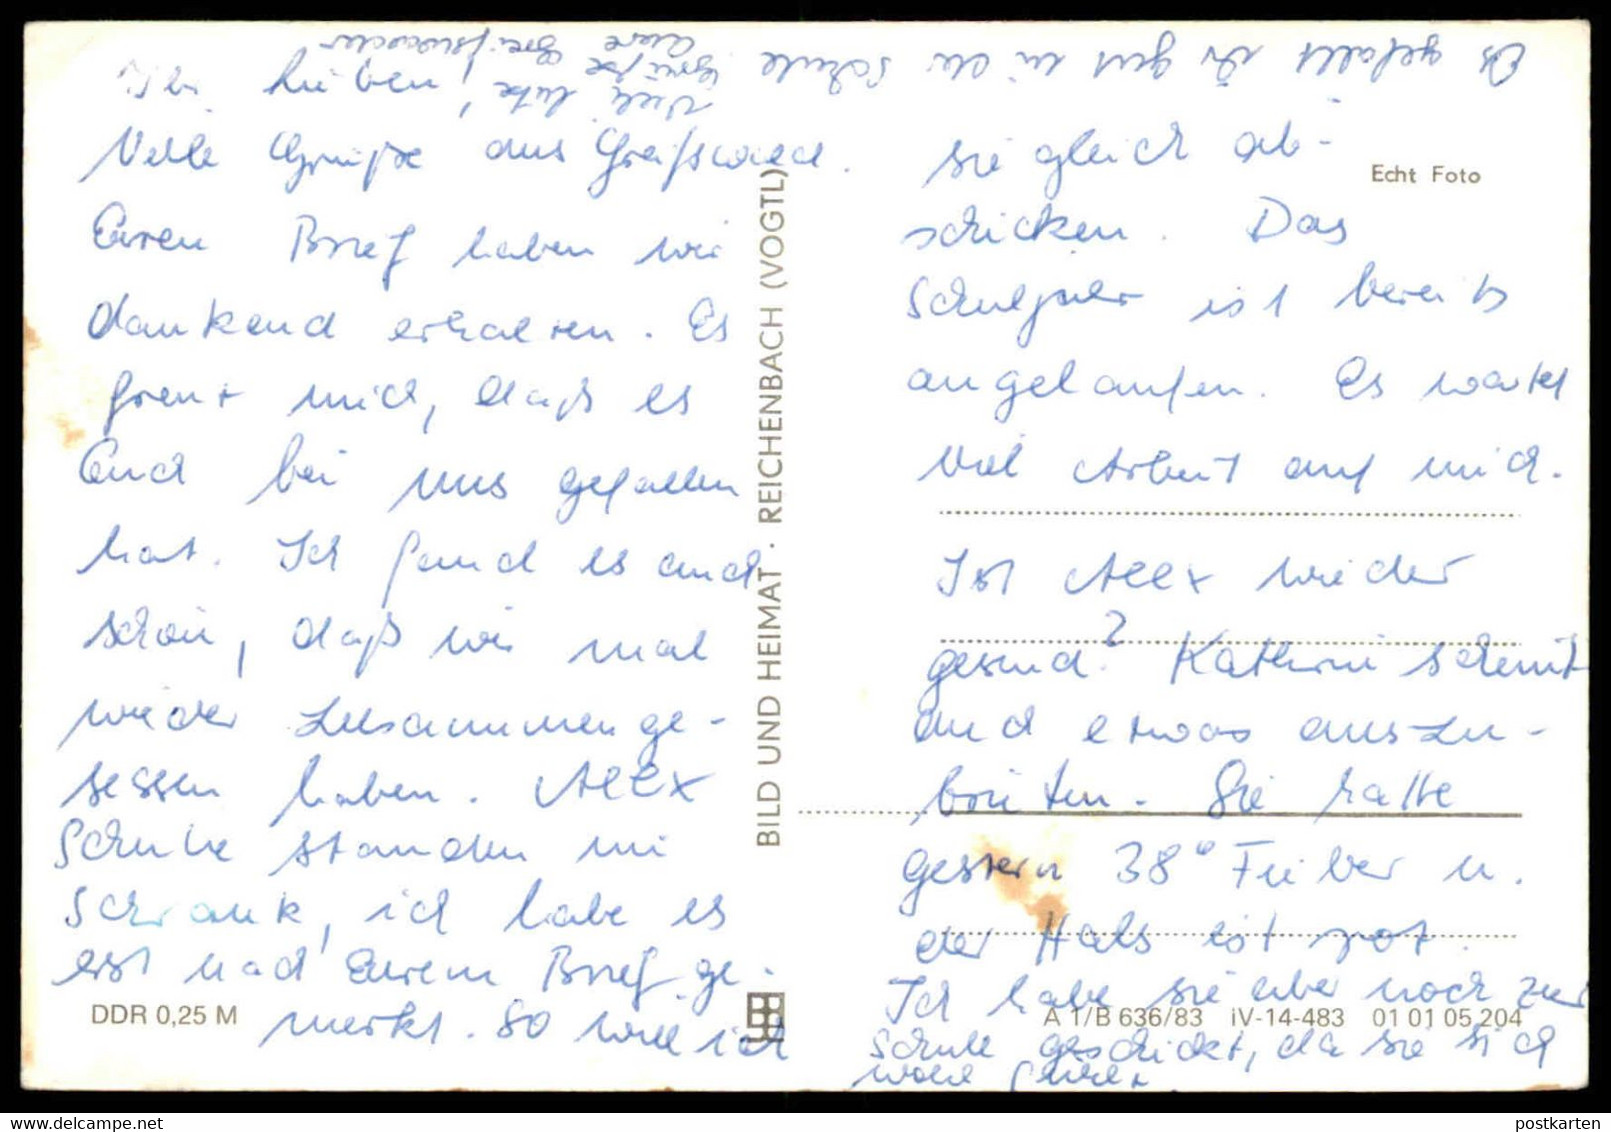 Ihr Lieben,
Viele Grüße aus Greifswald.
Euren Brief haben wir
dankend erhalten. Es
freut mich, daß es
Euch bei uns gefallen
hat. Ich fand es auch
schön, daß wir mal
wieder zusammenge-
sessen haben. Alex
Schuhe standen im
Schrank, ich habe es
erst nach Eurem Brief ge-
merkt. So will ich
sie gleich ab-
schicken. Das
Schuljahr ist bereits
angelaufen. Es wartet
viel Arbeit auf mich.
Ist Alex wieder
gesund? Kathrin scheint
auch etwas auszu-
brüten. Sie hatte
gestern 38° Fieber u.
der Hals ist rot.
Ich habe sie aber noch zur
Schule geschickt, da sie sich
wohl fühlt.
Es gefällt ihr gut in der Schule
Viele liebe Grüße
Eure Greifswalder
Echt Foto
BILD UND HEIMAT · REICHENBACH (VOGTL)
DDR 0,25 M
A 1/B 636/83 IV-14-483 01 01 05 204
postkarten